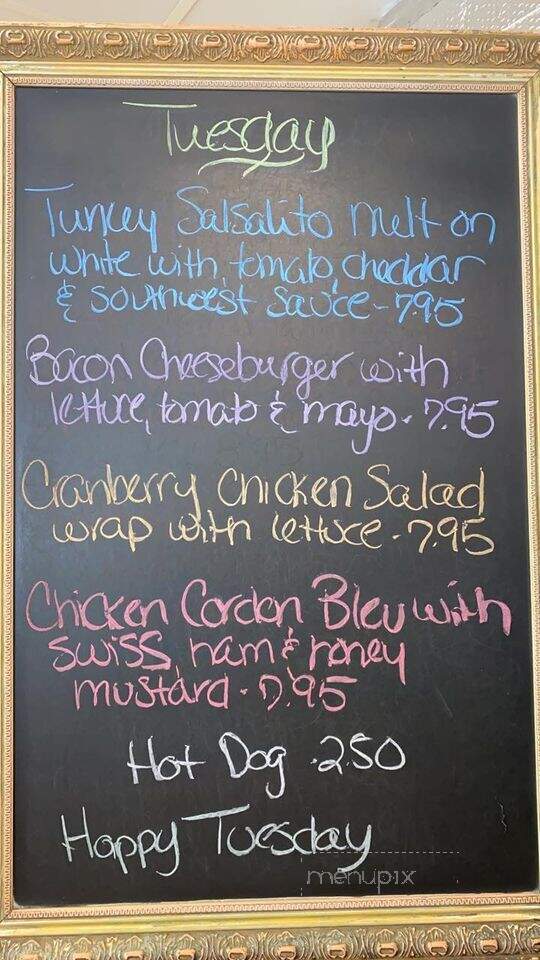 Tuesday
Turkey Salsalito melt on
white with, tomato, cheddar
& southwest sauce - 7.95
Bacon Cheeseburger with
lettuce, tomato & mayo. 7.95
Cranberry Chicken Salad
wrap with lettuce - 7.95
Chicken Cordon Bleu with
swiss, ham & honey
mustard - 7.95
Hot Dog . 2.50
Happy Tuesday
menupix